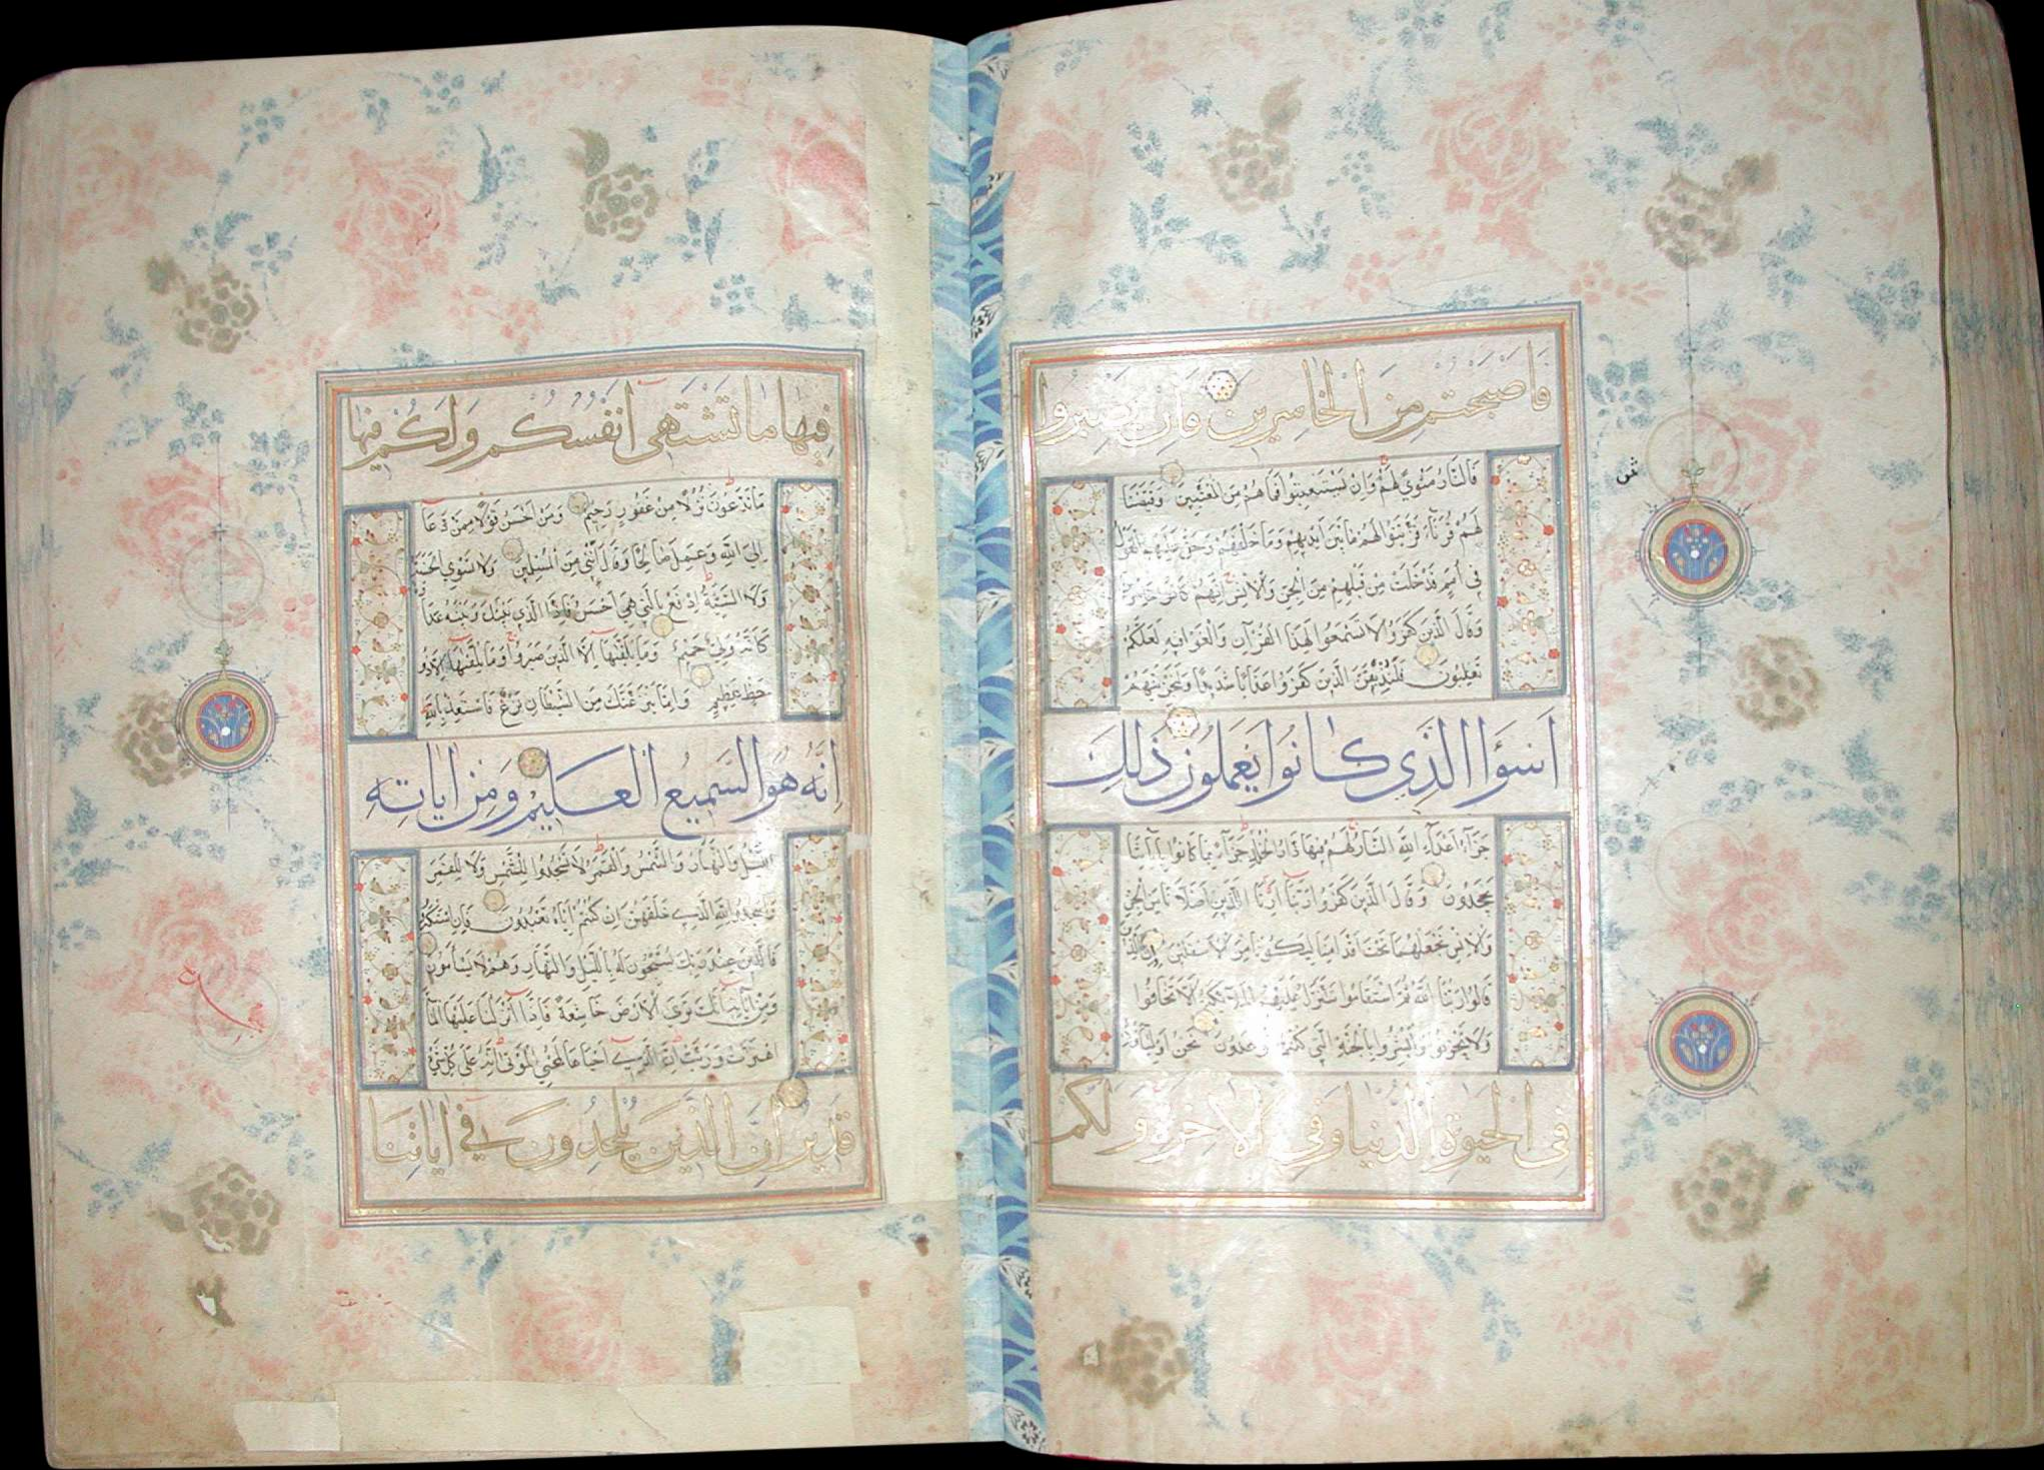 فَاَصْبَحْتُمْ مِنَ الْخَاسِرِينَ فَاِنْ يَصْبِرُوا
فَالنَّارُ مَثْوًى لَهُمْ وَاِنْ يَسْتَعْتِبُوا فَمَا هُمْ مِنَ الْمُعْتَبِينَ وَقَيَّضْنَا
لَهُمْ قُرَنَآءَ فَزَيَّنُوا لَهُمْ مَا بَيْنَ اَيْدِيهِمْ وَمَا خَلْفَهُمْ وَحَقَّ عَلَيْهِمُ الْقَوْلُ
فِي اُمَمٍ قَدْ خَلَتْ مِنْ قَبْلِهِمْ مِنَ الْجِنِّ وَالْاِنْسِ اِنَّهُمْ كَانُوا خَاسِرِينَ
وَقَالَ الَّذِينَ كَفَرُوا لَا تَسْمَعُوا لِهٰذَا الْقُرْآنِ وَالْغَوْا فِيهِ لَعَلَّكُمْ
تَغْلِبُونَ فَلَنُذِيقَنَّ الَّذِينَ كَفَرُوا عَذَابًا شَدِيدًا وَلَنَجْزِيَنَّهُمْ
اَسْوَاَ الَّذِي كَانُوا يَعْمَلُونَ ذٰلِكَ
جَزَآءُ اَعْدَآءِ اللّٰهِ النَّارُ لَهُمْ فِيهَا دَارُ الْخُلْدِ جَزَآءً بِمَا كَانُوا بِآيَاتِنَا
يَجْحَدُونَ وَقَالَ الَّذِينَ كَفَرُوا رَبَّنَا اَرِنَا الَّذَيْنِ اَضَلَّانَا مِنَ الْجِنِّ
وَالْاِنْسِ نَجْعَلْهُمَا تَحْتَ اَقْدَامِنَا لِيَكُونَا مِنَ الْاَسْفَلِينَ اِنَّ الَّذِينَ
قَالُوا رَبُّنَا اللّٰهُ ثُمَّ اسْتَقَامُوا تَتَنَزَّلُ عَلَيْهِمُ الْمَلٰٓئِكَةُ اَلَّا تَخَافُوا
وَلَا تَحْزَنُوا وَاَبْشِرُوا بِالْجَنَّةِ الَّتِي كُنْتُمْ تُوعَدُونَ نَحْنُ اَوْلِيَآؤُكُمْ
فِي الْحَيٰوةِ الدُّنْيَا وَفِي الْاٰخِرَةِ وَلَكُمْ
فِيهَا مَا تَشْتَهِي اَنْفُسُكُمْ وَلَكُمْ فِيهَا
مَا تَدَّعُونَ نُزُلًا مِنْ غَفُورٍ رَحِيمٍ وَمَنْ اَحْسَنُ قَوْلًا مِمَّنْ دَعَآ
اِلَى اللّٰهِ وَعَمِلَ صَالِحًا وَقَالَ اِنَّنِي مِنَ الْمُسْلِمِينَ وَلَا تَسْتَوِي الْحَسَنَةُ
وَلَا السَّيِّئَةُ اِدْفَعْ بِالَّتِي هِيَ اَحْسَنُ فَاِذَا الَّذِي بَيْنَكَ وَبَيْنَهُ عَدَاوَةٌ
كَاَنَّهُ وَلِيٌّ حَمِيمٌ وَمَا يُلَقّٰيهَآ اِلَّا الَّذِينَ صَبَرُوا وَمَا يُلَقّٰيهَآ اِلَّا ذُو
حَظٍّ عَظِيمٍ وَاِمَّا يَنْزَغَنَّكَ مِنَ الشَّيْطَانِ نَزْغٌ فَاسْتَعِذْ بِاللّٰهِ
اِنَّهُ هُوَ السَّمِيعُ الْعَلِيمُ وَمِنْ اٰيَاتِهِ
اللَّيْلُ وَالنَّهَارُ وَالشَّمْسُ وَالْقَمَرُ لَا تَسْجُدُوا لِلشَّمْسِ وَلَا لِلْقَمَرِ
وَاسْجُدُوا لِلّٰهِ الَّذِي خَلَقَهُنَّ اِنْ كُنْتُمْ اِيَّاهُ تَعْبُدُونَ فَاِنِ اسْتَكْبَرُوا
فَالَّذِينَ عِنْدَ رَبِّكَ يُسَبِّحُونَ لَهُ بِاللَّيْلِ وَالنَّهَارِ وَهُمْ لَا يَسْاَمُونَ
وَمِنْ اٰيَاتِهِ اَنَّكَ تَرَى الْاَرْضَ خَاشِعَةً فَاِذَآ اَنْزَلْنَا عَلَيْهَا الْمَآءَ
اهْتَزَّتْ وَرَبَتْ اِنَّ الَّذِي اَحْيَاهَا لَمُحْيِ الْمَوْتٰى اِنَّهُ عَلٰى كُلِّ شَيْءٍ
قَدِيرٌ اِنَّ الَّذِينَ يُلْحِدُونَ فِي اٰيَاتِنَا